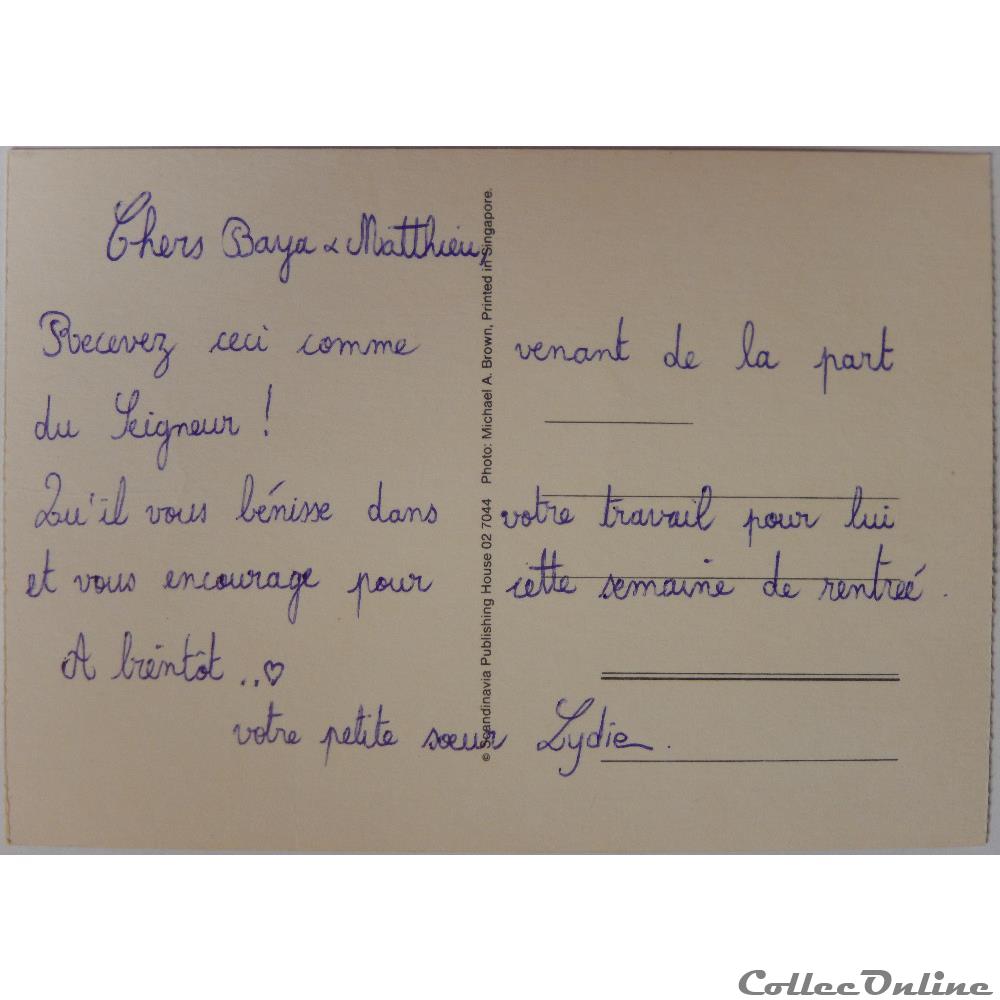 Chers Baya & Matthieu,
Recevez ceci comme venant de la part
du Seigneur !
Qu'il vous bénisse dans votre travail pour lui
et vous encourage pour cette semaine de rentreé.
A bientôt ..♡
votre petite sœur Lydie.
© Scandinavia Publishing House 02 7044 Photo: Michael A. Brown, Printed in Singapore.
CollecOnline